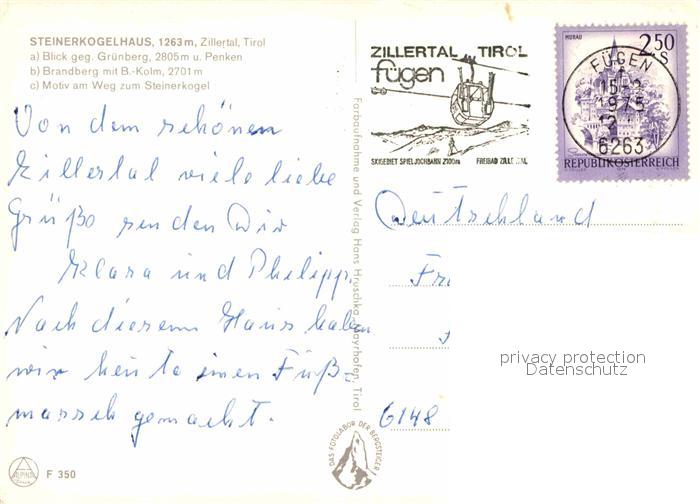 STEINERKOGELHAUS, 1263 m, Zillertal, Tirol
a) Blick geg. Grünberg, 2805 m u. Penken
b) Brandberg mit B.-Kolm, 2701 m
c) Motiv am Weg zum Steinerkogel
Von dem schönen
Zillertal viele liebe
Grüße senden Dir
Klara und Philipp.
Nach diesem Haus haben
wir heute einen Fuß-
marsch gemacht.
ALPINA
F 350
Farbaufnahme und Verlag Hans Hruschka, Mayrhofen, Tirol
DAS FOTOLABOR DER BERGSTEIGER
ZILLERTAL TIROL
fügen
SKIGEBIET SPIELJOCHBAHN 2100m FREIBAD
MURAU
2.50
S
FÜGEN
1975
6263
REPUBLIK ÖSTERREICH
Deutschland
Fr
6148
privacy protection
Datenschutz